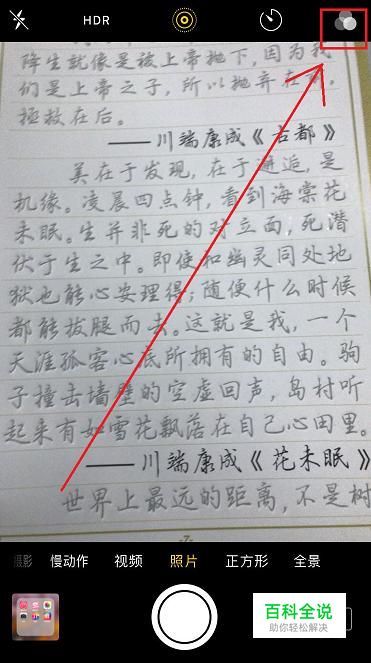 HDR
降生就像是被上帝抛下,因为我
们是上帝之子,所以抛弃在
拯救在后。
——川端康成《古都》
美在于发现,在于邂逅,是
机缘。凌晨四点钟,看到海棠花
未眠。生并非死的对立面,死潜
伏于生之中。即使和幽灵同处地
狱也能心安理得;随便什么时候
都能拔腿而去。这就是我,一个
天涯孤客心底所拥有的自由。驹
子撞击墙壁的空虚回声,岛村听
起来有如雪花飘落在自己心田里。
——川端康成《花未眠》
世界上最远的距离,不是树
摄影 慢动作 视频 照片 正方形 全景
百科全说
助你轻松解决